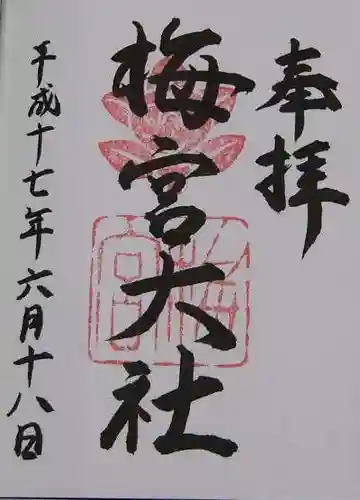 奉拝
梅宮大社
梅宮
平成十七年六月十八日